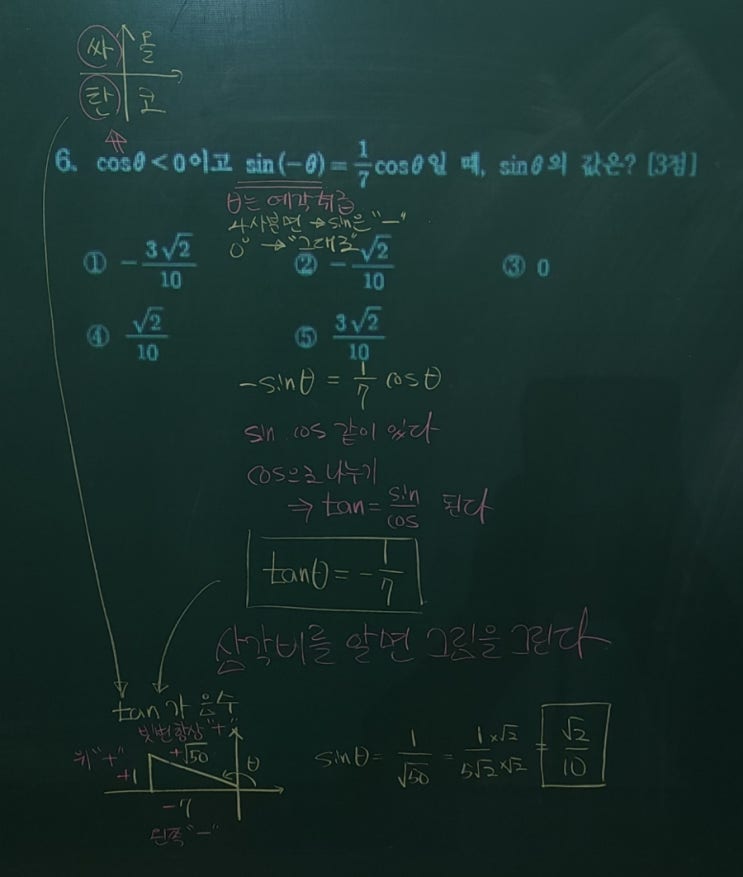 싸 올
탄 코
6. cosθ < 0이고 sin(-θ) = 1/7 cosθ일 때, sinθ의 값은? [3점]
θ는 예각취급
4사분면 → sin은 "-"
0° → "그대로"
① -3√2/10 ② -√2/10 ③ 0
④ √2/10 ⑤ 3√2/10
-sinθ = 1/7 cosθ
sin cos 같이 있다
cos으로 나누기
⇒ tan = sin/cos 된다
tanθ = -1/7
삼각비를 알면 그림을 그린다
tan가 음수
빗변 항상 "+"
위 "+" +1 +√50 θ
-7
왼쪽 "-"
sinθ = 1/√50 = 1×√2/5√2×√2 = √2/10